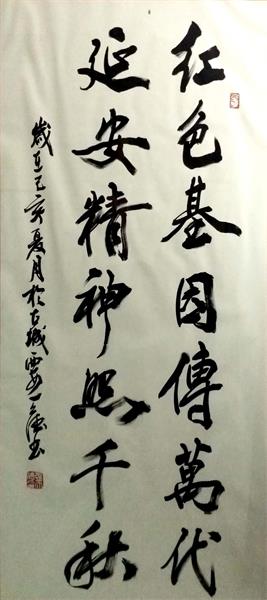 红色基因傳萬代
延安精神照千秋
歲在己亥夏月於古城西安一濤书